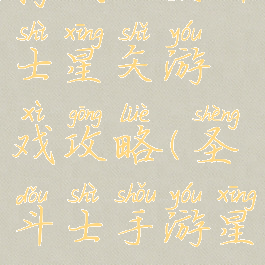 shì xīng shǐ yóu
士星矢游
xì gōng lüè ( shèng
戏攻略(圣
dòu shì shǒu yóu xīng
斗士手游星